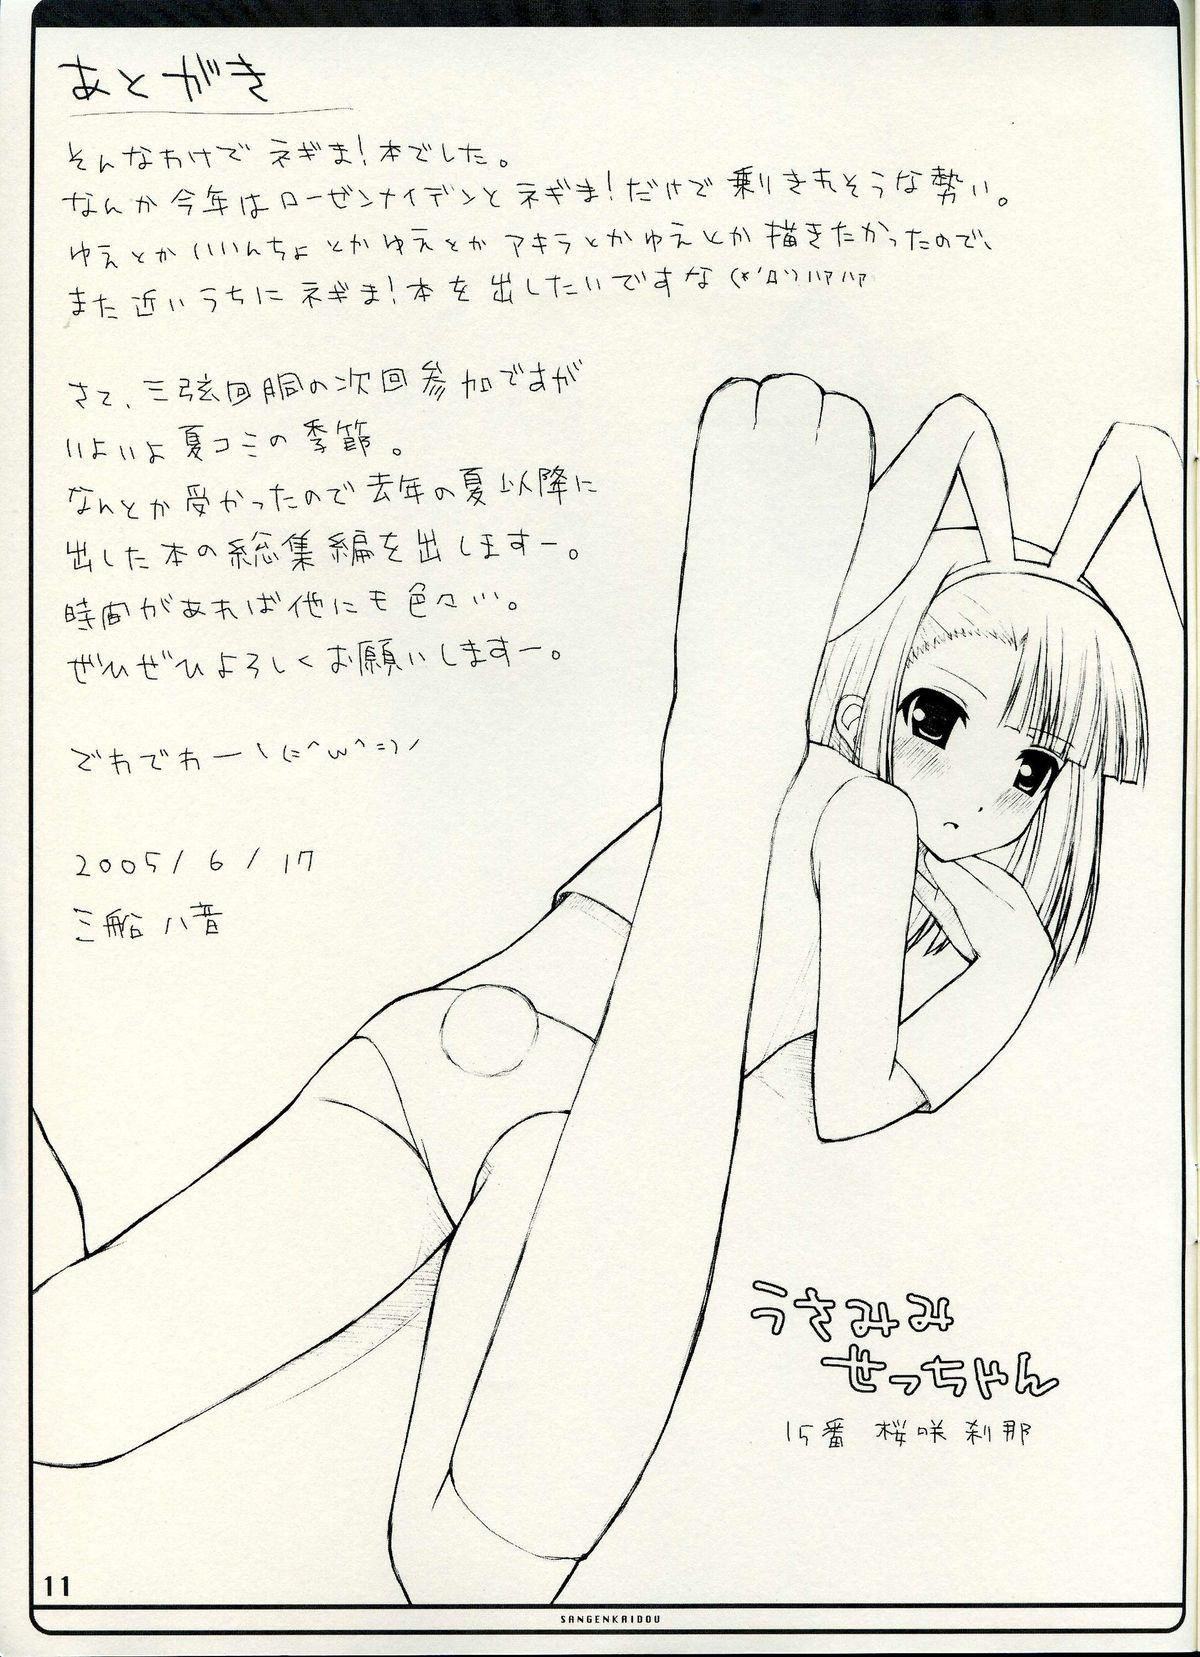 あとがき
そんなわけで ネギま!本でした。
なんか今年はローゼンメイデンとネギま!だけで乗りきれそうな勢い。
ゆえとかいいんちょとかゆえとかアキラとかゆえとか描きたかったので、
また近いうちにネギま!本を出したいですな (*´Д`)ハァハァ
さて、三弦回胴の次回参加ですが
いよいよ夏コミの季節。
なんとか受かったので去年の夏以降に
出した本の総集編を出しますー。
時間があれば他にも色々い。
ぜひぜひよろしくお願いしますー。
でわでわーヽ(=^w^=)ノ
2005/6/17
三船八音
うさみみ
せっちゃん
15番 桜咲刹那
11
SANGENKAIDOU